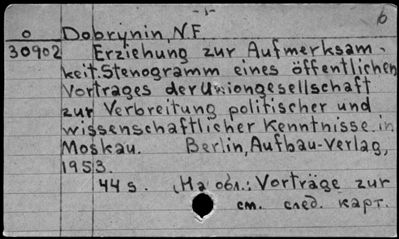 -1-
6
o Dobrynin, N F
30902 Erziehung zur Aufmerksam-
keit. Stenogramm eines öffentlichen
Vortrages der Uniongesellschaft
zur Verbreitung politischer und
wissenschaftlicher Kenntnisse in
Moskau. Berlin, Aufbau-Verlag,
1953.
44 s. (На обл.: Vorträge zur
см. след. карт.